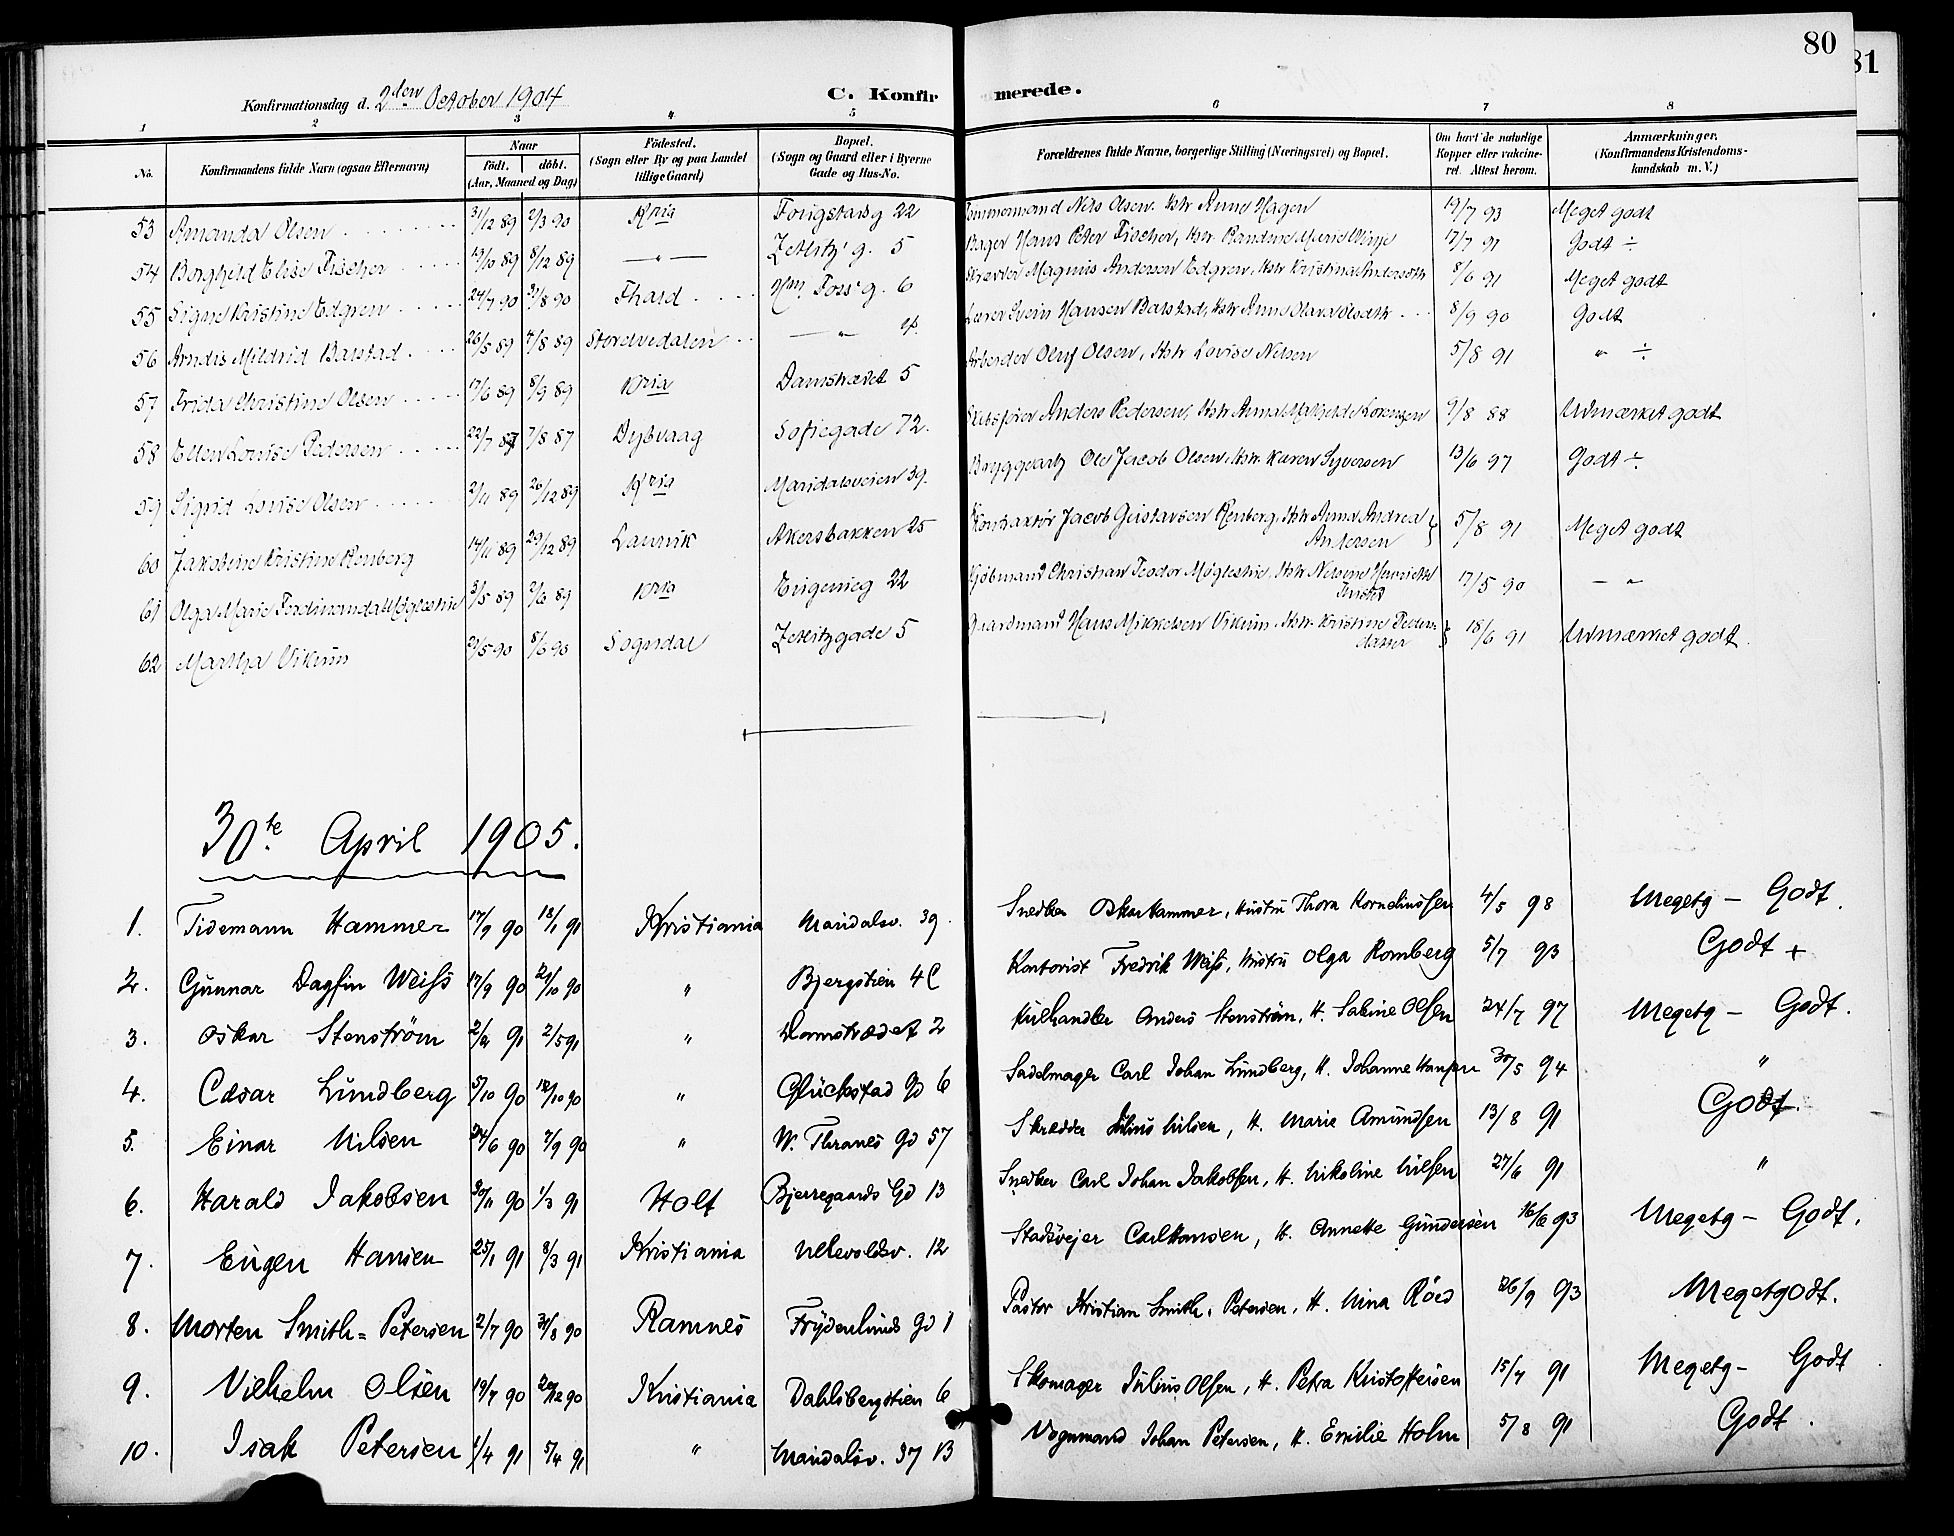 80
81
Konfirmationsdag d. 2den October 1904
C. Konfirmerede.
1 2 3 4 5 6 7 8
No. Konfirmandens fulde Navn (ogsaa Efternavn) Naar født. døbt. (Aar, Maaned og Dag) Fødested. (Sogn eller By og paa Landet tillige Gaard) Bopæl. (Sogn og Gaard eller i Byerne Gade og Hus-No. Forældrenes fulde Navne, borgerlige Stilling (Næringsvei) og Bopæl. Om havt de naturlige Kopper eller vakcineret. Attest herom. Anmærkninger. (Konfirmandens Kristendomskundskab m. V.)
53 Amanda Olsen 31/12 89 2/3 90 Kria 22 Tømmermand Nils Olsen. Hstr Anne Hagen 19/7 93 Meget godt
54 Borghild Elise Fischer 19/10 89 8/12 89 — " — Zetlitz' g. 5 Bager Hans Peter Fischer, Hstr. Randine Marie 17/7 91 Godt ÷
55 Signe Kristine Edgren 24/7 90 31/8 90 Thard Hm. Foss' g. 6 Skredder Magnus Andersen Edgren, Hstr Kristina Andersdtr 8/6 91 Meget godt
56 Arndis Mildrid Barstad 26/5 89 4/8 89 Storelvedalen — " 4. Lærer Svein Hansen Barstad, Hstr Anne Olava Olsdtr 8/9 90 Godt
57 Frida Christine Olsen 17/6 89 8/9 89 Kria Damstrædet 5 Arbeider Oluf Olsen, Hstr Lovise Nilsen 5/8 91 " ÷
58 Ellen Louise Pedersen 22/7 87 7/8 87 Dybvaag Sofiegade 72. Skibsfører Anders Pedersen, Hstr Anna Mathilde Lorensen 9/8 88 Udmærket godt
59 Sigrid Lovise Olsen 2/11 89 26/12 89 Kria Maridalsveien 39. Bryggearb Ole Jacob Olsen, Hstr. Karen Syversen 13/6 97 Godt ÷
60 Jakobine Kristine Renberg 14/11 89 29/12 89 Laurvik Akersbakken 25 Jacob Gustavsen Renberg, Hstr Anna Andrea Andersen 5/8 91 Meget godt
61 Olga Marie Ferdinanda Møglestue 3/5 89 2/6 89 Kria Eugenieg 22 Kjøbmand Christian Teodor Møglestue. Hstr Nilsine Henriette 17/5 90 — "
62 Martha Vikum 21/5 90 8/6 90 Sogndal Zetlitzgade 5 Gaardmand Hans Mikkelsen Vikum. Hstr. Kristine Pedersdatter 18/6 91 Udmærket godt.
30te April 1905.
1. Tidemann Hammer 17/9 90 18/1 91 Kristiania Maridalsv. 39. Snedker Oskar Hammer, Hustru Thora Korneliussen 4/5 98 Megetg – Godt.
2. Gunnar Dagfin Weiss 17/9 90 21/10 90 " Bjergstien 4C Kontorist Fredrik Weiss, Hustru Olga Romberg 5/7 93 Godt +
3. Oskar Stenström 2/2 91 2/5 91 " Damstrædet 2 Kulhandler Anders Stenström, H. Sabine Olsen 24/7 97 Megetg – Godt.
4. Cæsar Lundberg 5/10 90 12/10 90 " Glückstad Gd 6 Sadelmager Carl Johan Lundberg, H. Johanne Hansen 30/5 94 "
5. Einar Nilsen 24/6 90 7/9 90 " W. Thranes Gd 57 Skrædder Julius Nilsen, H. Marie Amundsen 13/8 91 Godt.
6. Harald Jakobsen 30/11 90 1/3 91 Holt Bjerregaards Gd 13 Snedker Carl Johan Jakobsen, H. Nikoline Nilsen 27/6 91 "
7. Eugen Hansen 25/1 91 8/3 91 Kristiania Ullevoldsv. 12 Stadsvejer Carl Hansen, H. Annette Gundersen 16/6 93 Megetg – Godt.
8. Morten Smith=Petersen 2/7 90 31/8 90 Ramnes Frydenlunds Gd 1 Pastor Kristian Smith-Petersen, H. Nina Röed 26/9 93 Megetgodt.
9. Vilhelm Olsen 19/7 90 26/12 90 Kristiania Dahlsbergstien 6 Skomager Julius Olsen, H. Petra Kristoffersen 15/7 91 Megetg – Godt
10. Isak Petersen 1/4 91 5/4 91 " Maridalsv. 37 B Vognmand Johan Petersen, H. Emilie Holm 5/8 91 Godt.